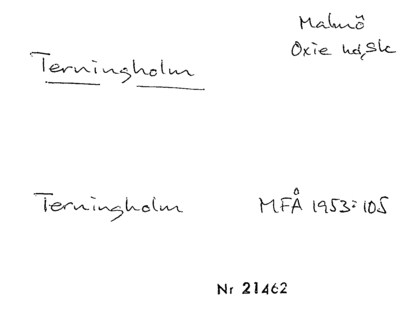 Malmö
Oxie hd, Sk
Terningholm
Terningholm MFÅ 1953:105
Nr 21462